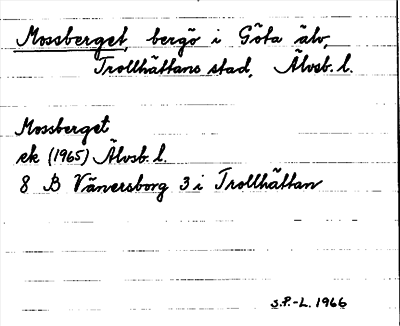 Mossberget, bergö i Göta älv,
Trollhättans stad, Älvsb. l.
Mossberget
ek (1965) Älvsb. l.
8 B Vänersborg 3 i Trollhättan
S.P.-L. 1966